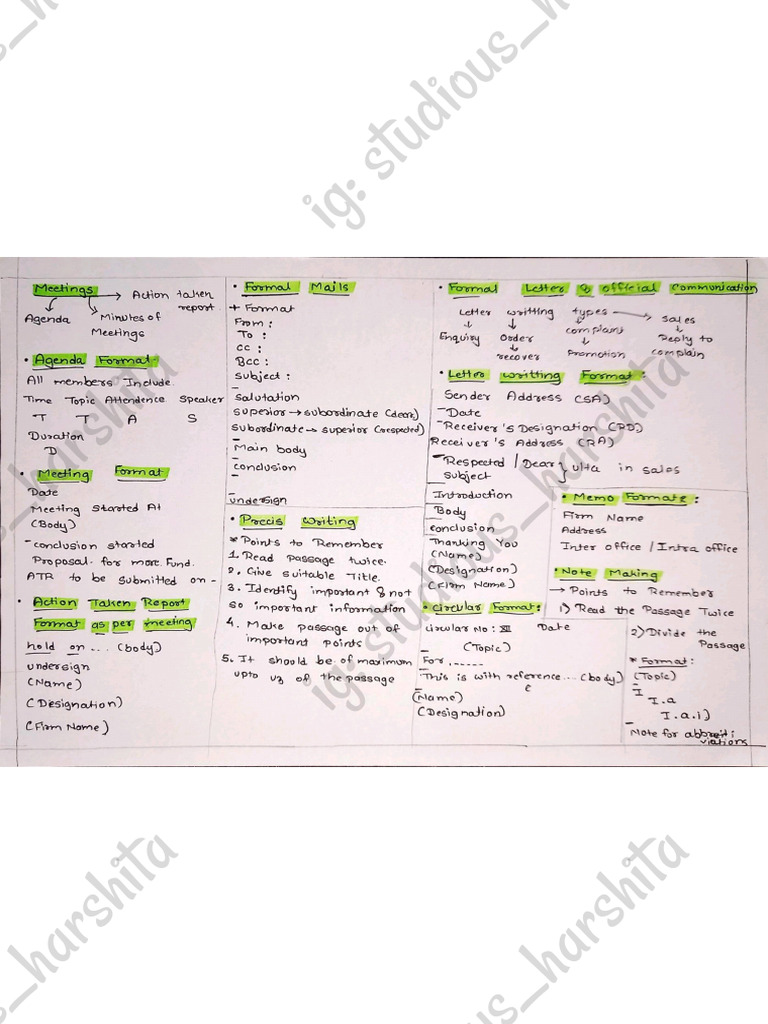 ig: studious_harshita
Meetings
Action taken
report
Agenda
Minutes of
Meetings
• Agenda Format:
All members Include.
Time Topic Attendence Speaker
T T A S
Duration
D
• Meeting Format
Date
Meeting started At
(Body)
- conclusion started
Proposal for more Fund.
ATR to be submitted on -
• Action Taken Report
Format as per meeting
hold on ... (body)
undersign
(Name)
(Designation)
(Firm Name)
• Formal Mails
+ Format
From :
To :
CC :
BCC :
subject :
- salutation
superior → subordinate (dear)
subordinate → superior (respected)
- Main body
- conclusion
- undersign
• Precis Writing
* Points to Remember
1. Read passage twice.
2. Give suitable Title.
3. Identify important & not
so important information
4. Make passage out of
important points
5. It should be of maximum
upto 1/3 of the passage
• Formal Letter & official communication
Letter writting types → sales
Enquiry order complaint Reply to
recover Promotion complain
• Letter writting Format :
Sender Address (SA)
- Date
- Receiver's Designation (RD)
Receiver's Address (RA)
- Respected / Dear } ulta in sales
subject
- Introduction
- Body
- conclusion
- Thanking You
(Name)
(Designation)
(Firm Name)
• circular Format :
circular No : XII Date
(Topic)
- For ......
- This is with reference ... (body)
- (Name)
(Designation)
• Memo Formate :
Firm Name
Address
Inter office / Intra office
• Note Making
→ Points to Remember
1) Read the Passage Twice
2) Divide the
Passage
* Format :
(Topic)
- I
I.a
I.a.1)
- Note for abbreti:
viations
ig: studious_harshita